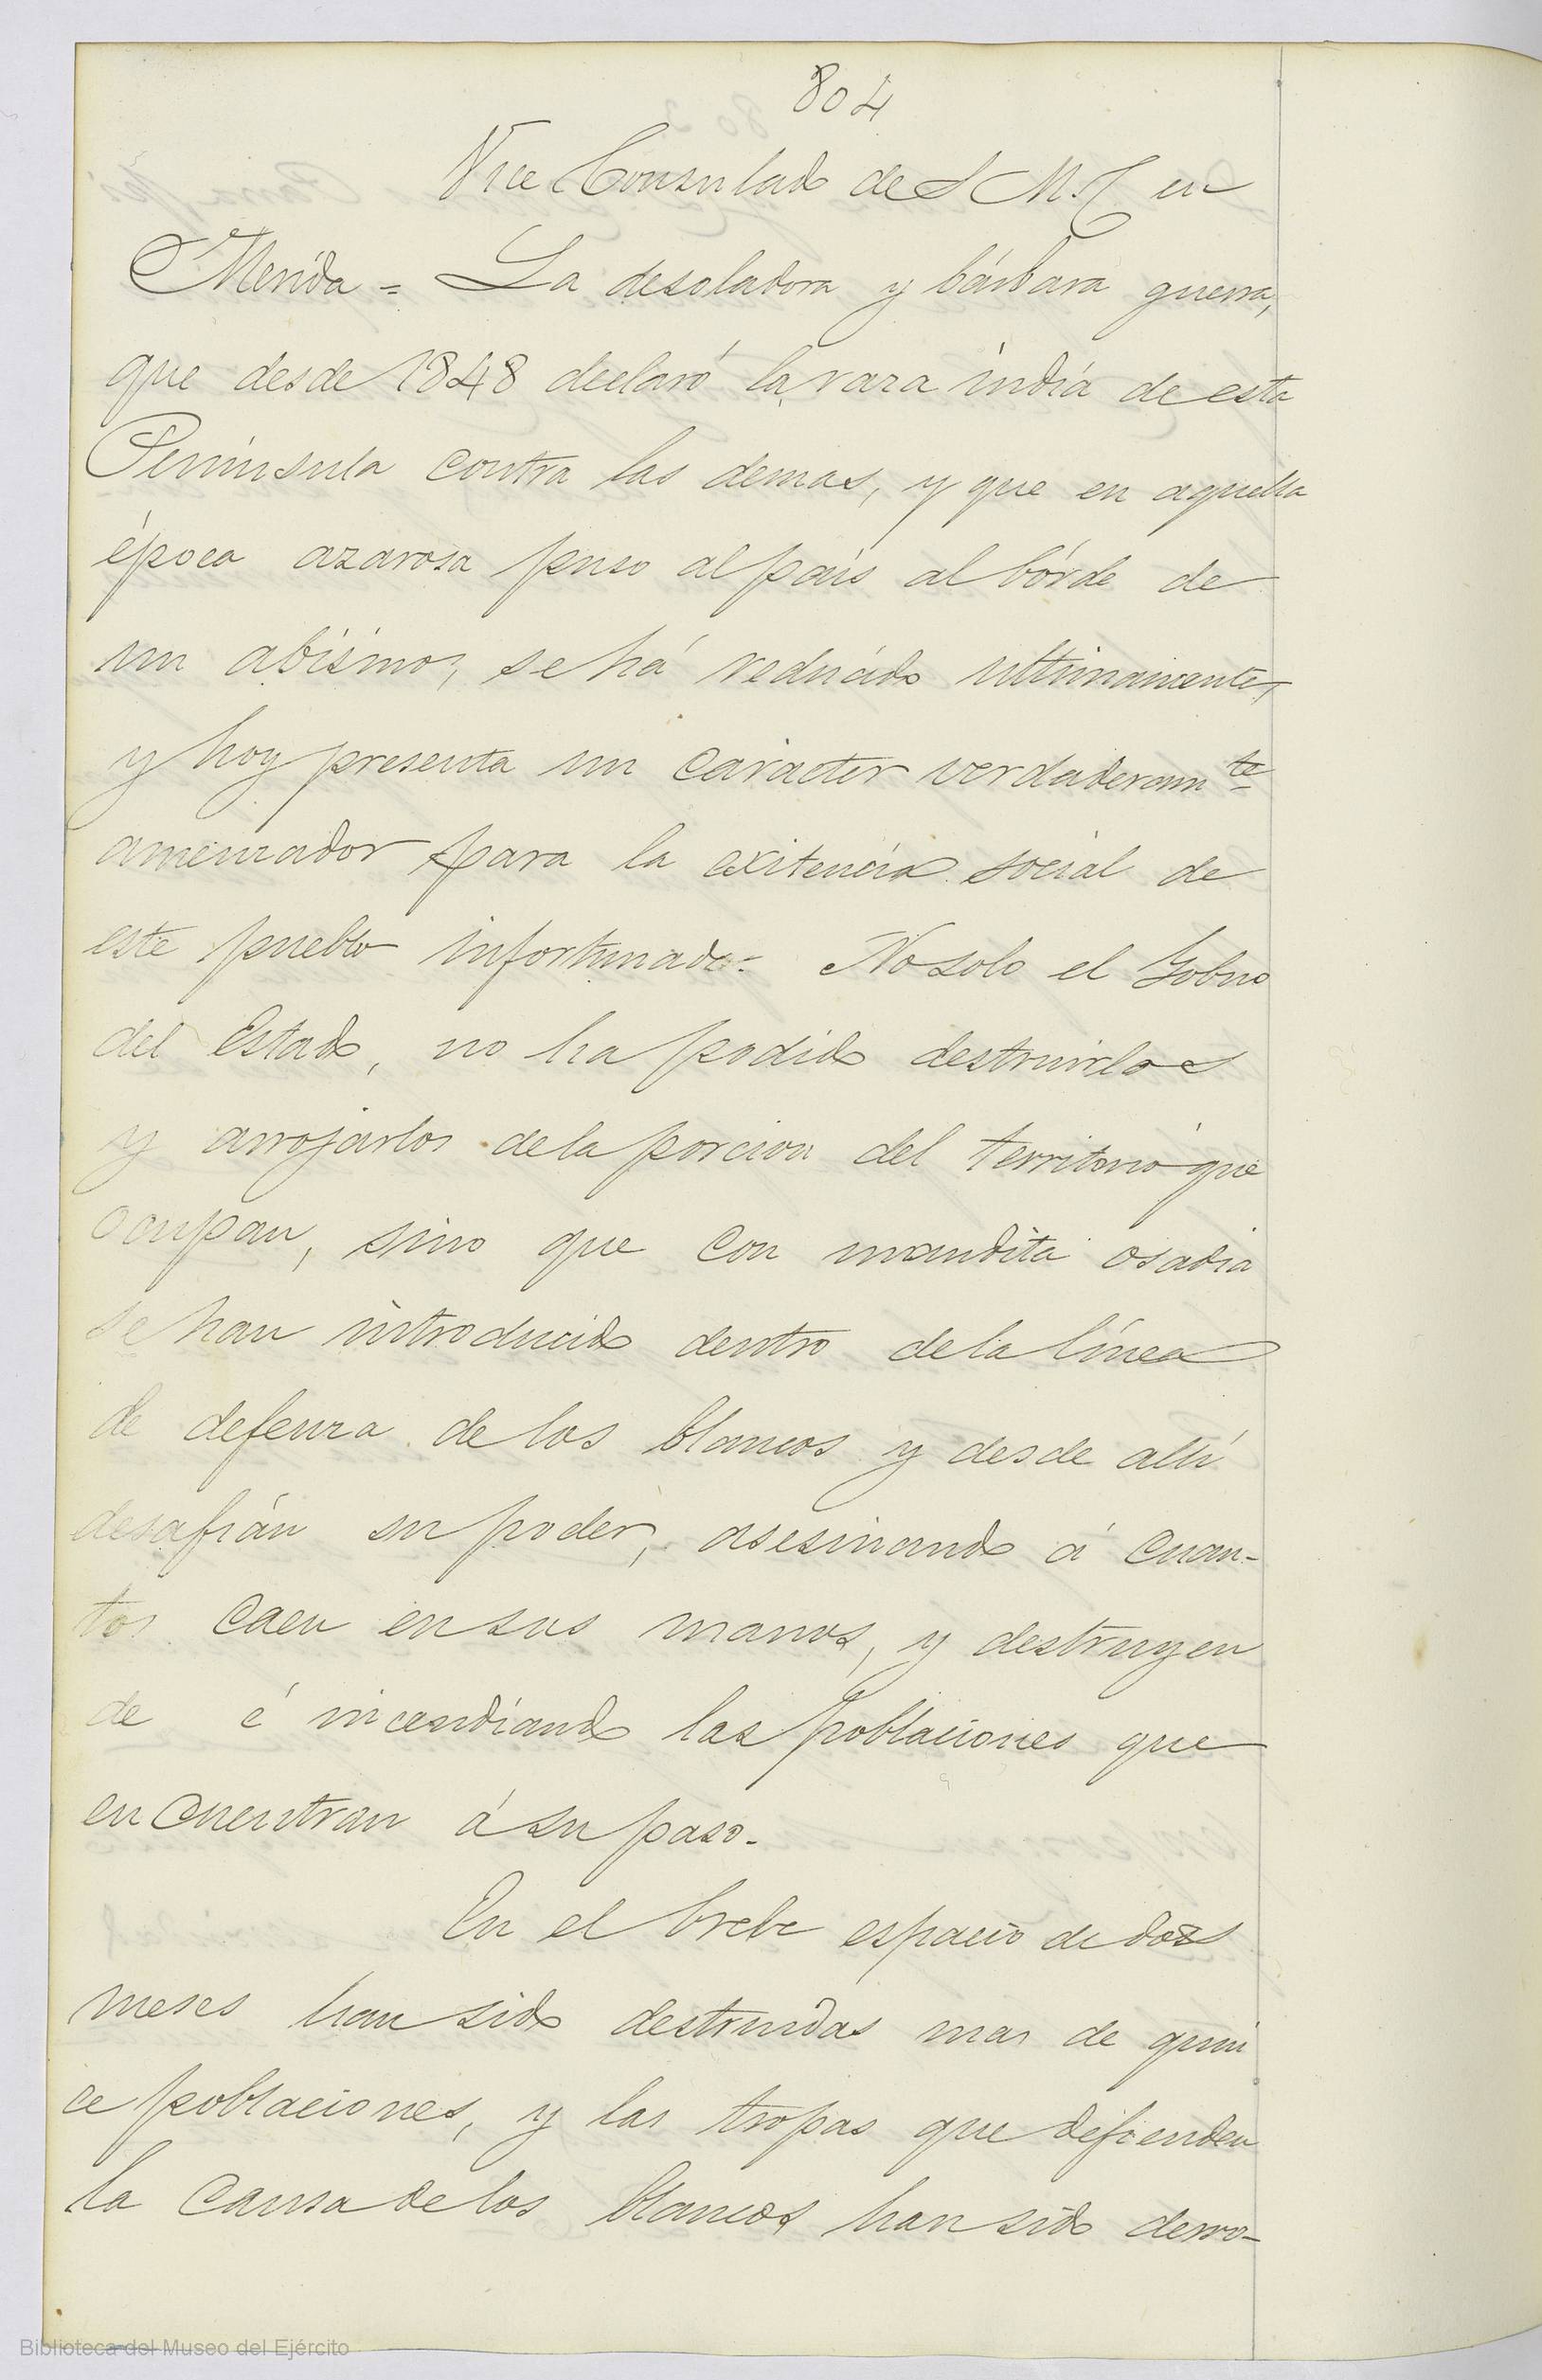 804
Vice Consulado de S M. C en
Merida = La desoladora y bárbara guerra,
que desde 1848 declaró la raza indiá de esta
Peninsula contra las demas, y que en aquella
época azarosa puso al país al bórde de
un abismo, se há reducido ultimamente,
y hoy presenta un caracter verdaderamte
amenzador para la exitencia social de
este pueblo infortunado. No solo el Gobno
del Estado, no ha podido destruirlos
y arrojarlos de la porcion del territorio que
ocupan, sino que con inaudita osadia
se han introducido dentro de la línea
de defenza de los blancos y desde allí
desafián su poder, asesinando á cuan-
tos caen en sus manos, y destruyen
do é incendiando las poblaciones que
encuentran á su paso.
En el brebe espacio de dos
meses han sido destruidas mas de quin
ce poblaciones, y las tropas que defienden
la causa de los blancos han sido derro-
Biblioteca del Museo del Ejército